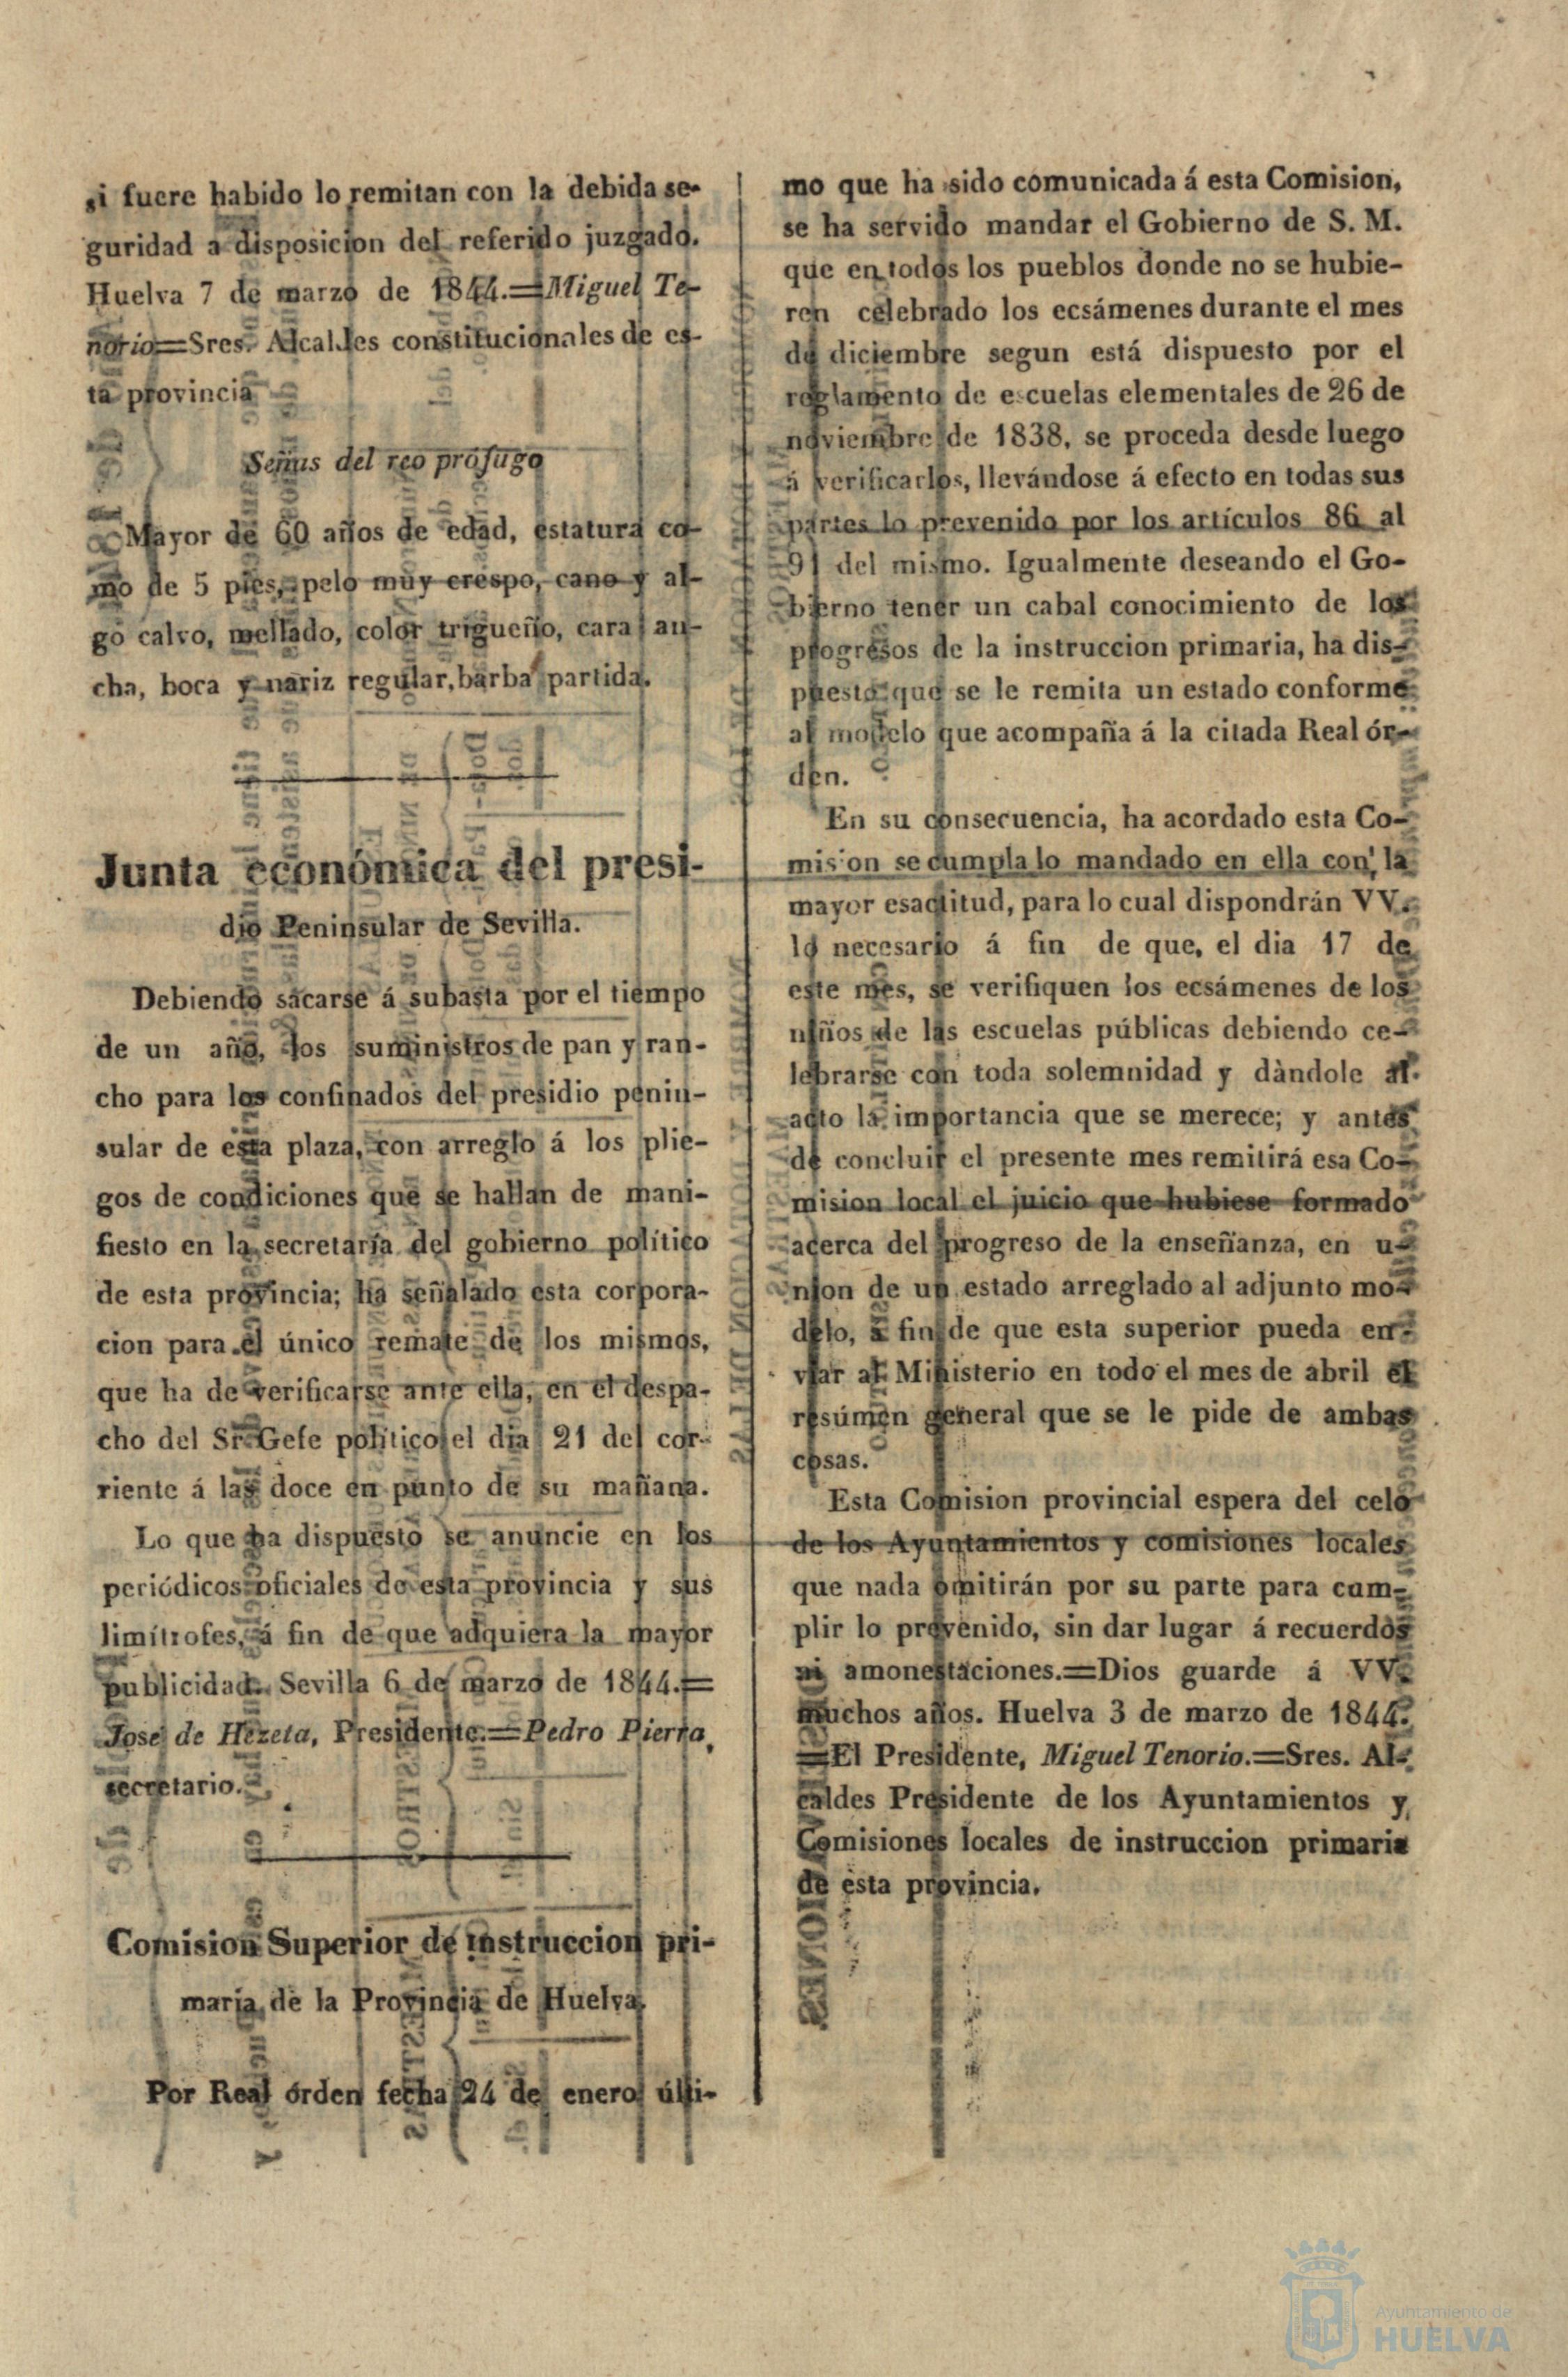 si fuere habido lo remitan con la debida se-
guridad a disposicion del referido juzgado.
Huelva 7 de marzo de 1844.=Miguel Te-
norio=Sres. Alcaldes constitucionales de es-
ta provincia
Señas del reo prófugo
Mayor de 60 años de edad, estatura co-
mo de 5 pies, pelo muy crespo, cano y al-
go calvo, mellado, color trigueño, cara an-
cha, boca y nariz regular, barba partida.
Junta económica del presi-
dio Peninsular de Sevilla.
Debiendo sacarse á subasta por el tiempo
de un año, los suministros de pan y ran-
cho para los confinados del presidio penin-
sular de esta plaza, con arreglo á los plie-
gos de condiciones que se hallan de mani-
fiesto en la secretaría del gobierno político
de esta provincia; ha señalado esta corpora-
cion para el único remate de los mismos,
que ha de verificarse ante ella, en el despa-
cho del Sr. Gefe político el dia 21 del cor-
riente á las doce en punto de su mañana.
Lo que ha dispuesto se anuncie en los
periódicos oficiales de esta provincia y sus
limítrofes, á fin de que adquiera la mayor
publicidad. Sevilla 6 de marzo de 1844.=
José de Hezeta, Presidente.=Pedro Pierra,
secretario.
Comision Superior de instruccion pri-
maria de la Provincia de Huelva.
Por Real órden fecha 24 de enero últi-
mo que ha sido comunicada á esta Comision,
se ha servido mandar el Gobierno de S. M.
que en todos los pueblos donde no se hubie-
ren celebrado los ecsámenes durante el mes
de diciembre segun está dispuesto por el
reglamento de escuelas elementales de 26 de
noviembre de 1838, se proceda desde luego
á verificarlos, llevándose á efecto en todas sus
partes lo prevenido por los artículos 86 al
91 del mismo. Igualmente deseando el Go-
bierno tener un cabal conocimiento de los
progresos de la instruccion primaria, ha dis-
puesto que se le remita un estado conforme
al modelo que acompaña á la citada Real ór-
den.
En su consecuencia, ha acordado esta Co-
mision se cumpla lo mandado en ella con la
mayor esactitud, para lo cual dispondrán VV.
lo necesario á fin de que, el dia 17 de
este mes, se verifiquen los ecsámenes de los
niños de las escuelas públicas debiendo ce-
lebrarse con toda solemnidad y dàndole al
acto la importancia que se merece; y antes
de concluir el presente mes remitirá esa Co-
mision local el juicio que hubiese formado
acerca del progreso de la enseñanza, en u-
nion de un estado arreglado al adjunto mo-
delo, á fin de que esta superior pueda en-
viar al Ministerio en todo el mes de abril el
resúmen general que se le pide de ambas
cosas.
Esta Comision provincial espera del celo
de los Ayuntamientos y comisiones locales
que nada omitirán por su parte para cum-
plir lo prevenido, sin dar lugar á recuerdos
ni amonestaciones.=Dios guarde á VV.
muchos años. Huelva 3 de marzo de 1844.
=El Presidente, Miguel Tenorio.=Sres. Al-
caldes Presidente de los Ayuntamientos y
Comisiones locales de instruccion primaria
de esta provincia.
Ayuntamiento de
HUELVA